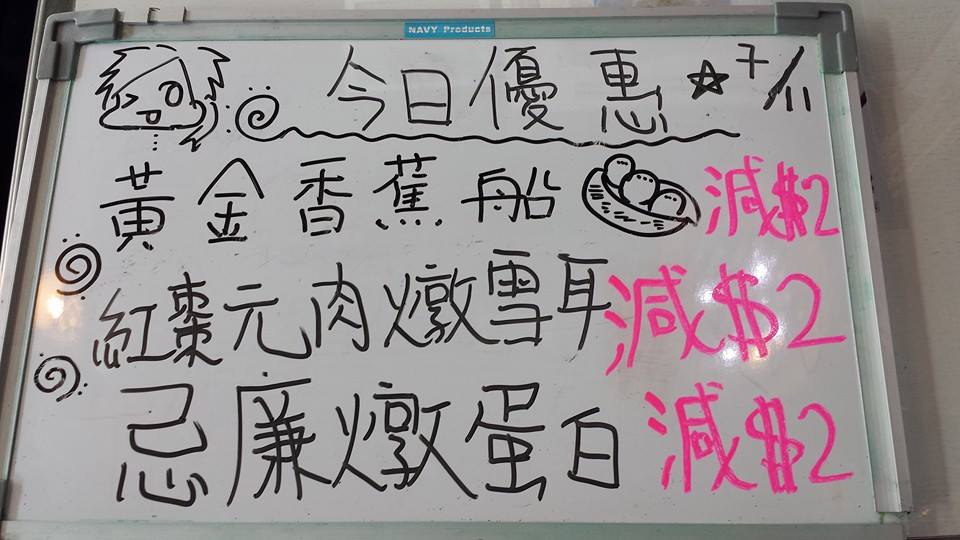 NAVY Products
今日優惠 ☆ 7/11
黃金香蕉船 減$2
紅棗元肉燉雪耳 減$2
忌廉燉蛋白 減$2